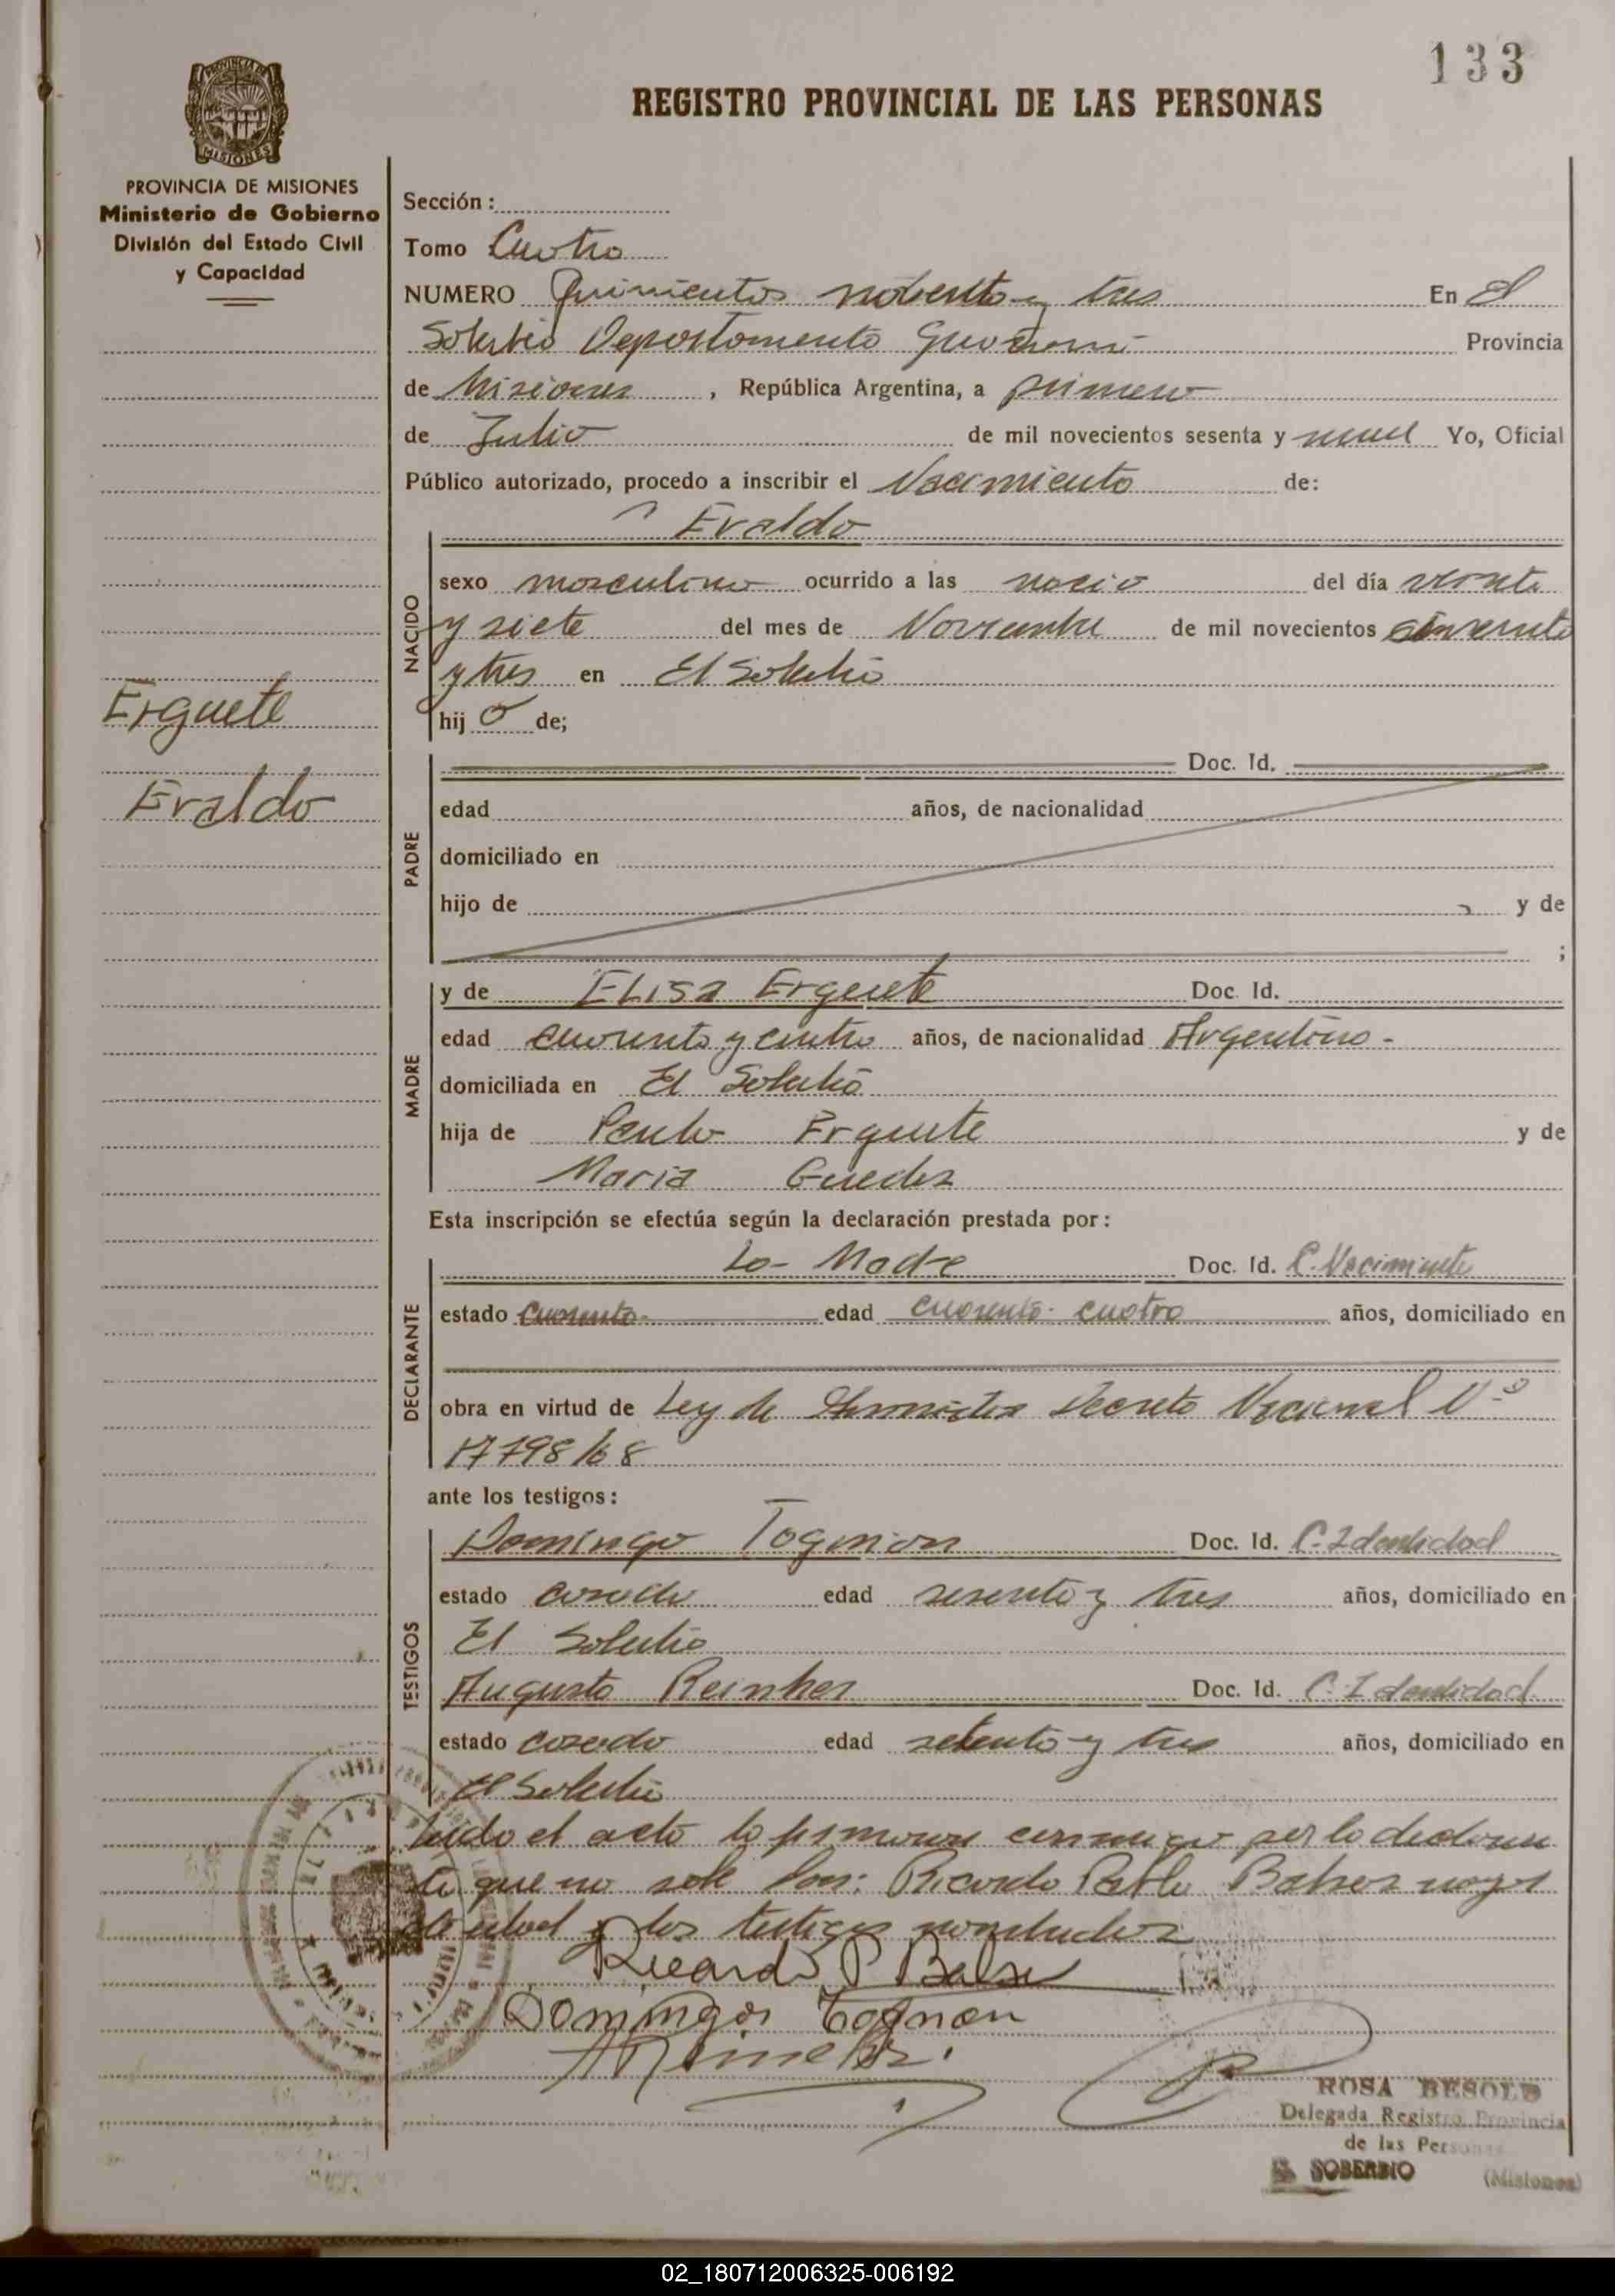 133
REGISTRO PROVINCIAL DE LAS PERSONAS
PROVINCIA DE MISIONES
Ministerio de Gobierno
División del Estado Civil
y Capacidad
Sección :
Tomo Cuatro
NUMERO Quinientos noventa y tres En El
Soberbio Departamento Guarani Provincia
de Misiones , República Argentina, a primero
de Julio de mil novecientos sesenta y nueve Yo, Oficial
Público autorizado, procedo a inscribir el Nacimiento de:
Evaldo
NACIDO
sexo masculino ocurrido a las del día veinte
y siete del mes de Noviembre de mil novecientos cincuenta
y tres en El Soberbio
hij o de;
Erguete
Evaldo
PADRE
Doc. Id.
edad años, de nacionalidad
domiciliado en
hijo de y de
;
MADRE
y de ELisa Erguete Doc. Id.
edad cuarenta y cuatro años, de nacionalidad Argentina -
domiciliada en El Soberbio
hija de Erguete y de
Maria Guedez
Esta inscripción se efectúa según la declaración prestada por :
DECLARANTE
La - Madre Doc. Id. C. Nacimiento
estado cuarenta edad cuarenta - cuatro años, domiciliado en
obra en virtud de Ley de Amnistia Decreto Nacional Nº
17798/68
ante los testigos :
TESTIGOS
Domingo Tognon Doc. Id. C. Identidad
estado casado edad sesenta y tres años, domiciliado en
El Soberbio
Augusto Doc. Id. C. Identidad
estado casado edad setenta y tres años, domiciliado en
El Soberbio
Leido el acto lo firmaron conmigo por la declaran
te que no sabe Ricardo Pablo mayor
de edad y los testigos nombrados
Ricardo P
Domingos Tognon
ROSA BESOLD
Delegada Registro Provincia
de las Personas
EL SOBERBIO (Misiones)
02_180712006325-006192